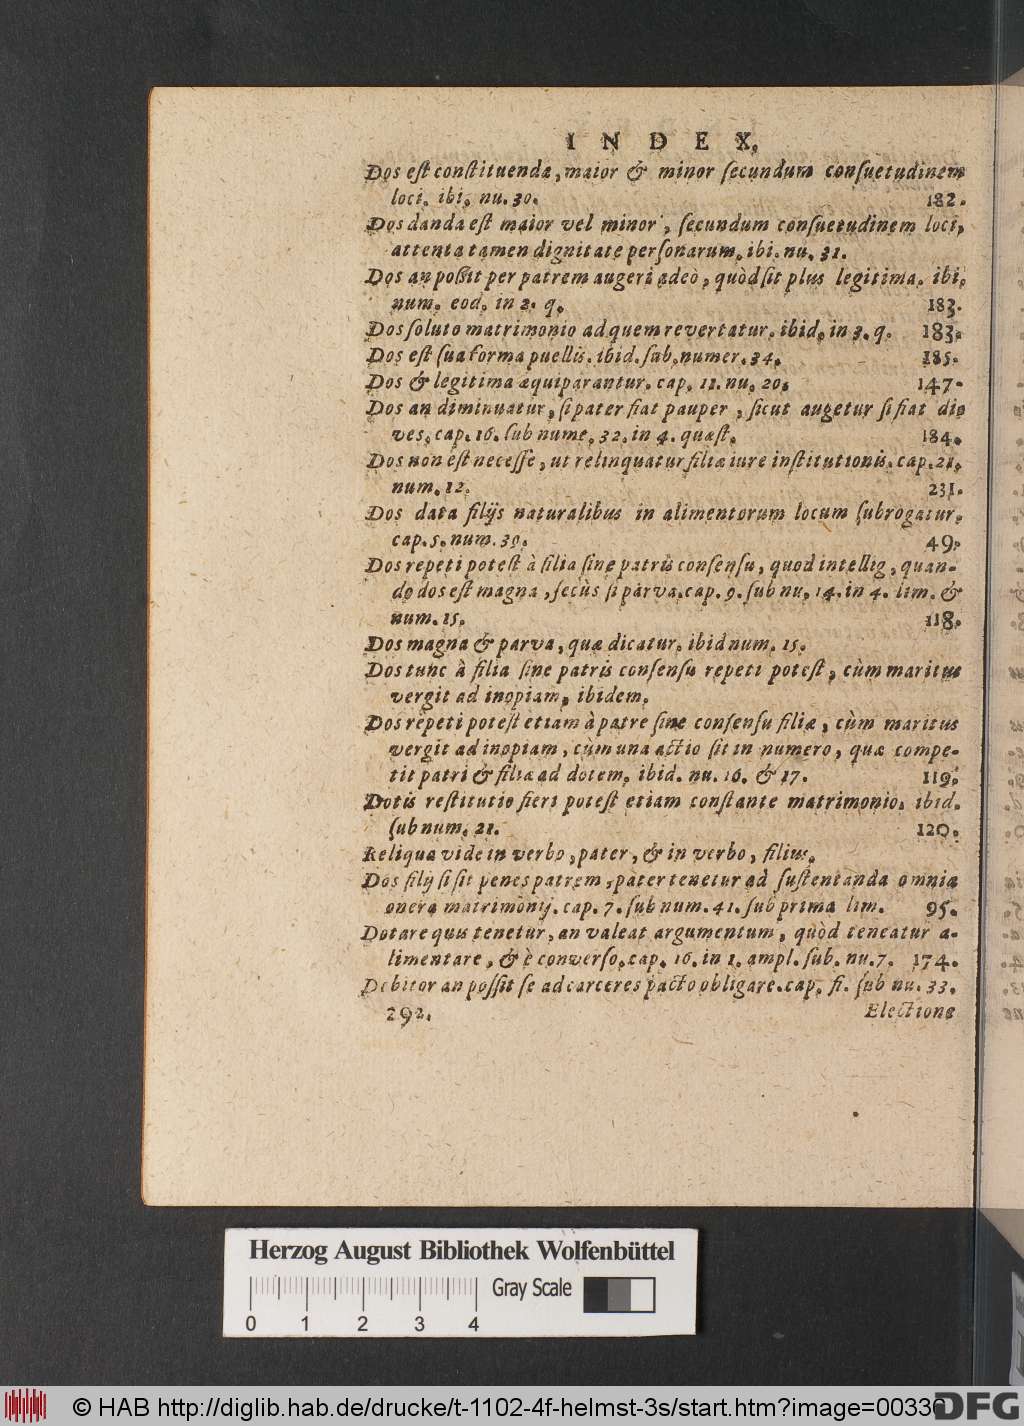 INDEX.
Dos est constituenda, maior & minor secundum consuetudinem
loci. ibi. nu. 30. 182.
Dos danda est maior vel minor, secundum consuetudinem loci,
attenta tamen dignitate personarum. ibi. nu. 31.
Dos an poßit per patrem augeri adeò, quòd sit plus legitima. ibi.
num. eod. in 2. q. 183.
Dos soluto matrimonio ad quem revertatur. ibid. in 3. q. 183.
Dos est sua forma puellis. ibid. sub. numer. 34. 185.
Dos & legitima æquiparantur. cap. 11. nu. 20. 147.
Dos an diminuatur, si pater fiat pauper, sicut augetur si fiat di-
ves. cap. 16. sub nume. 32. in 4. quæst. 184.
Dos non est necesse, ut relinquatur filiæ iure institutionis. cap. 21.
num. 12. 231.
Dos data filijs naturalibus in alimentorum locum subrogatur.
cap. 5. num. 39. 49.
Dos repeti potest à filia sine patris consensu, quod intellig, quan-
do dos est magna, secùs si parva. cap. 9. sub nu. 14. in 4. lim. &
num. 15. 118.
Dos magna & parva, quæ dicatur. ibid num. 15.
Dos tunc à filia sine patris consensu repeti potest, cùm maritus
vergit ad inopiam, ibidem.
Dos repeti potest etiam à patre sine consensu filiæ, cùm maritus
vergit ad inopiam, cùm una actio sit in numero, quæ compe-
tit patri & filiæ ad dotem. ibid. nu. 16. & 17. 119.
Dotis restitutio fieri potest etiam constante matrimonio. ibid.
sub num. 21. 120.
Reliqua vide in verbo, pater, & in verbo, filius.
Dos filij si sit penes patrem, pater tenetur ad sustentanda omnia
onera matrimonij. cap. 7. sub num. 41. sub prima lim. 95.
Dotare quis tenetur, an valeat argumentum, quòd teneatur a-
limentare, & è converso. cap. 16. in 1. ampl. sub. nu. 7. 174.
Debitor an possit se ad carceres pacto obligare. cap. fi. sub nu. 33.
292. Electiona
Herzog August Bibliothek Wolfenbüttel
Gray Scale
0 1 2 3 4
© HAB http://diglib.hab.de/drucke/t-1102-4f-helmst-3s/start.htm?image=00330
DFG